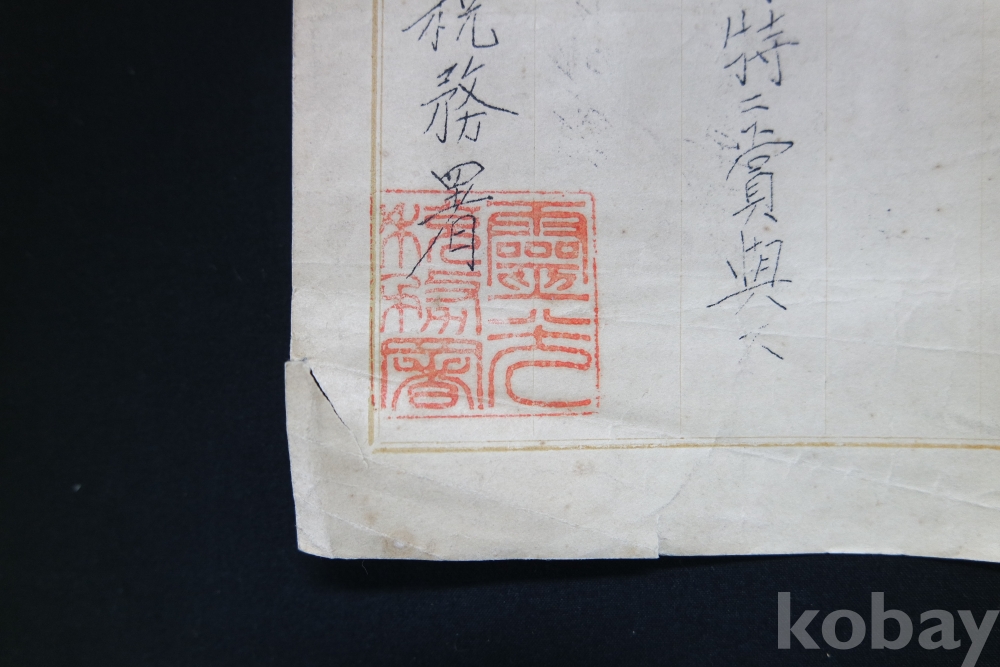 特ニ賞與ス
税務署
靈光
税務署
kobay